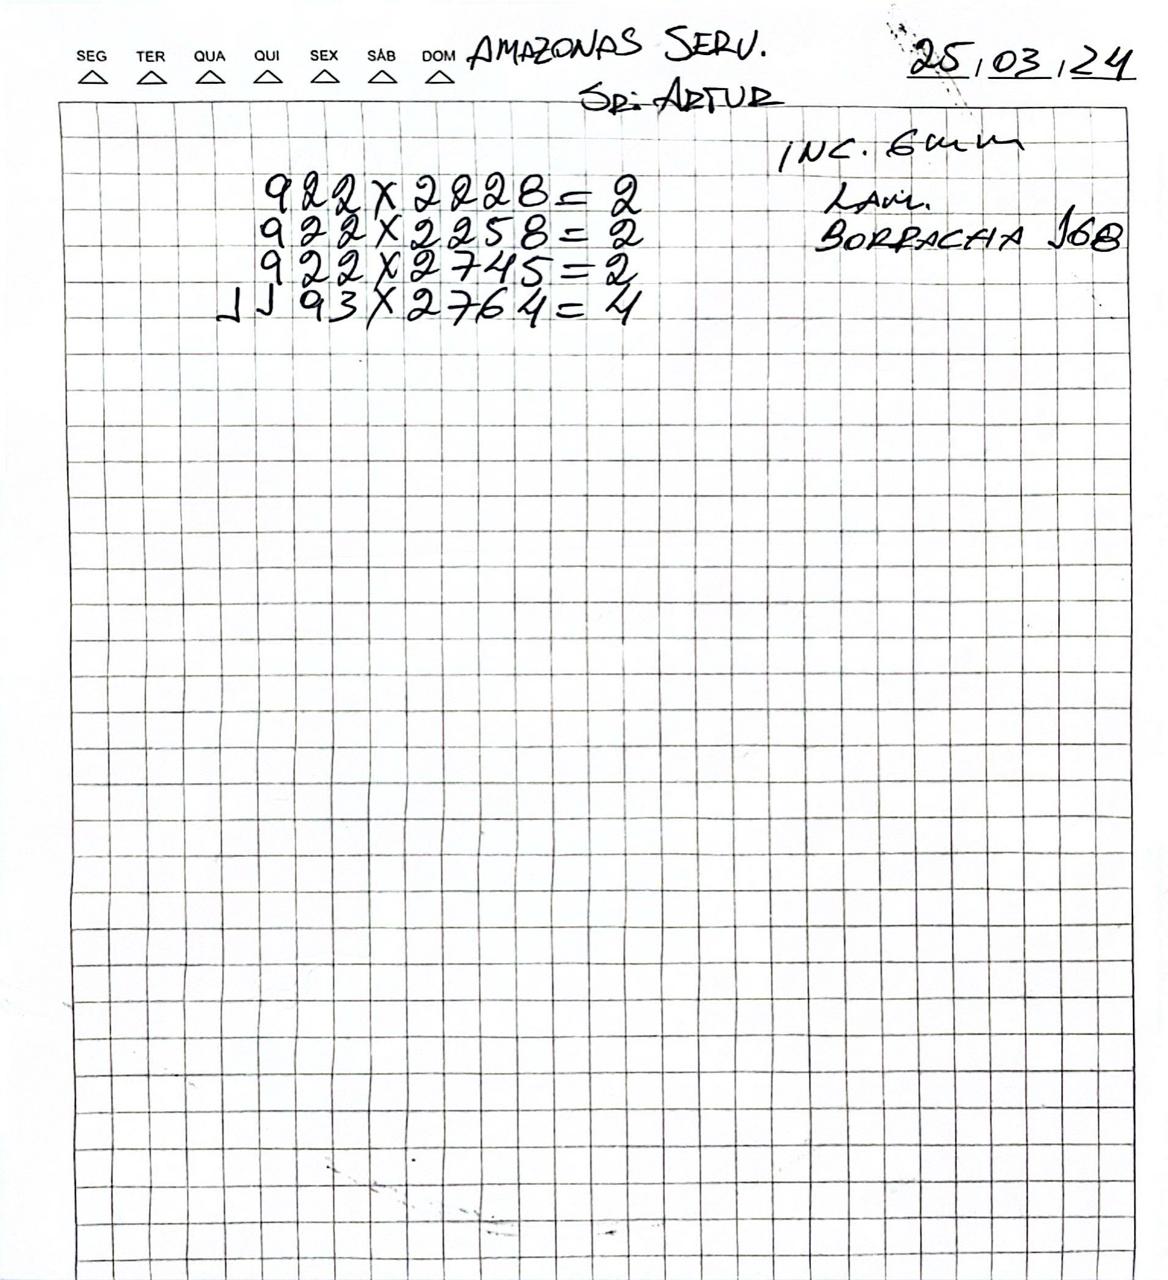 SEG TER QUA QUI SEX SÁB DOM AMAZONAS SERV. 25/03/24
SR: ARTUR
INC. 6mm
922 X 2228 = 2
LAM.
922 X 2258 = 2
BORRACHA 168
922 X 2745 = 2
1193 X 2764 = 4